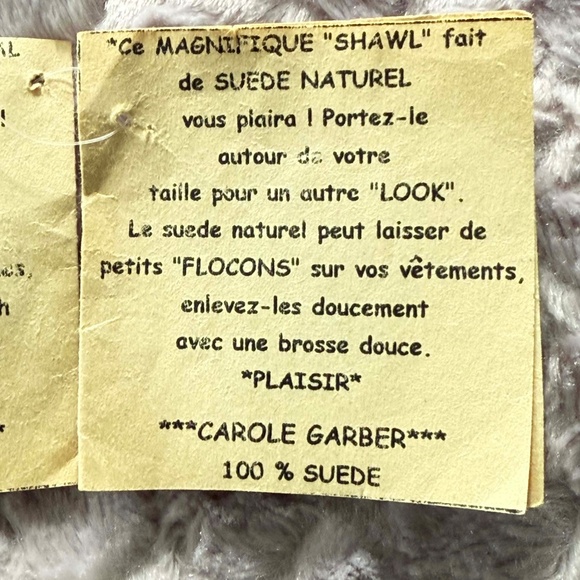 *Ce MAGNIFIQUE "SHAWL" fait
de SUEDE NATUREL
vous plaira ! Portez-le
autour de votre
taille pour un autre "LOOK".
Le suede naturel peut laisser de
petits "FLOCONS" sur vos vêtements,
enlevez-les doucement
avec une brosse douce.
*PLAISIR*
***CAROLE GARBER***
100 % SUEDE